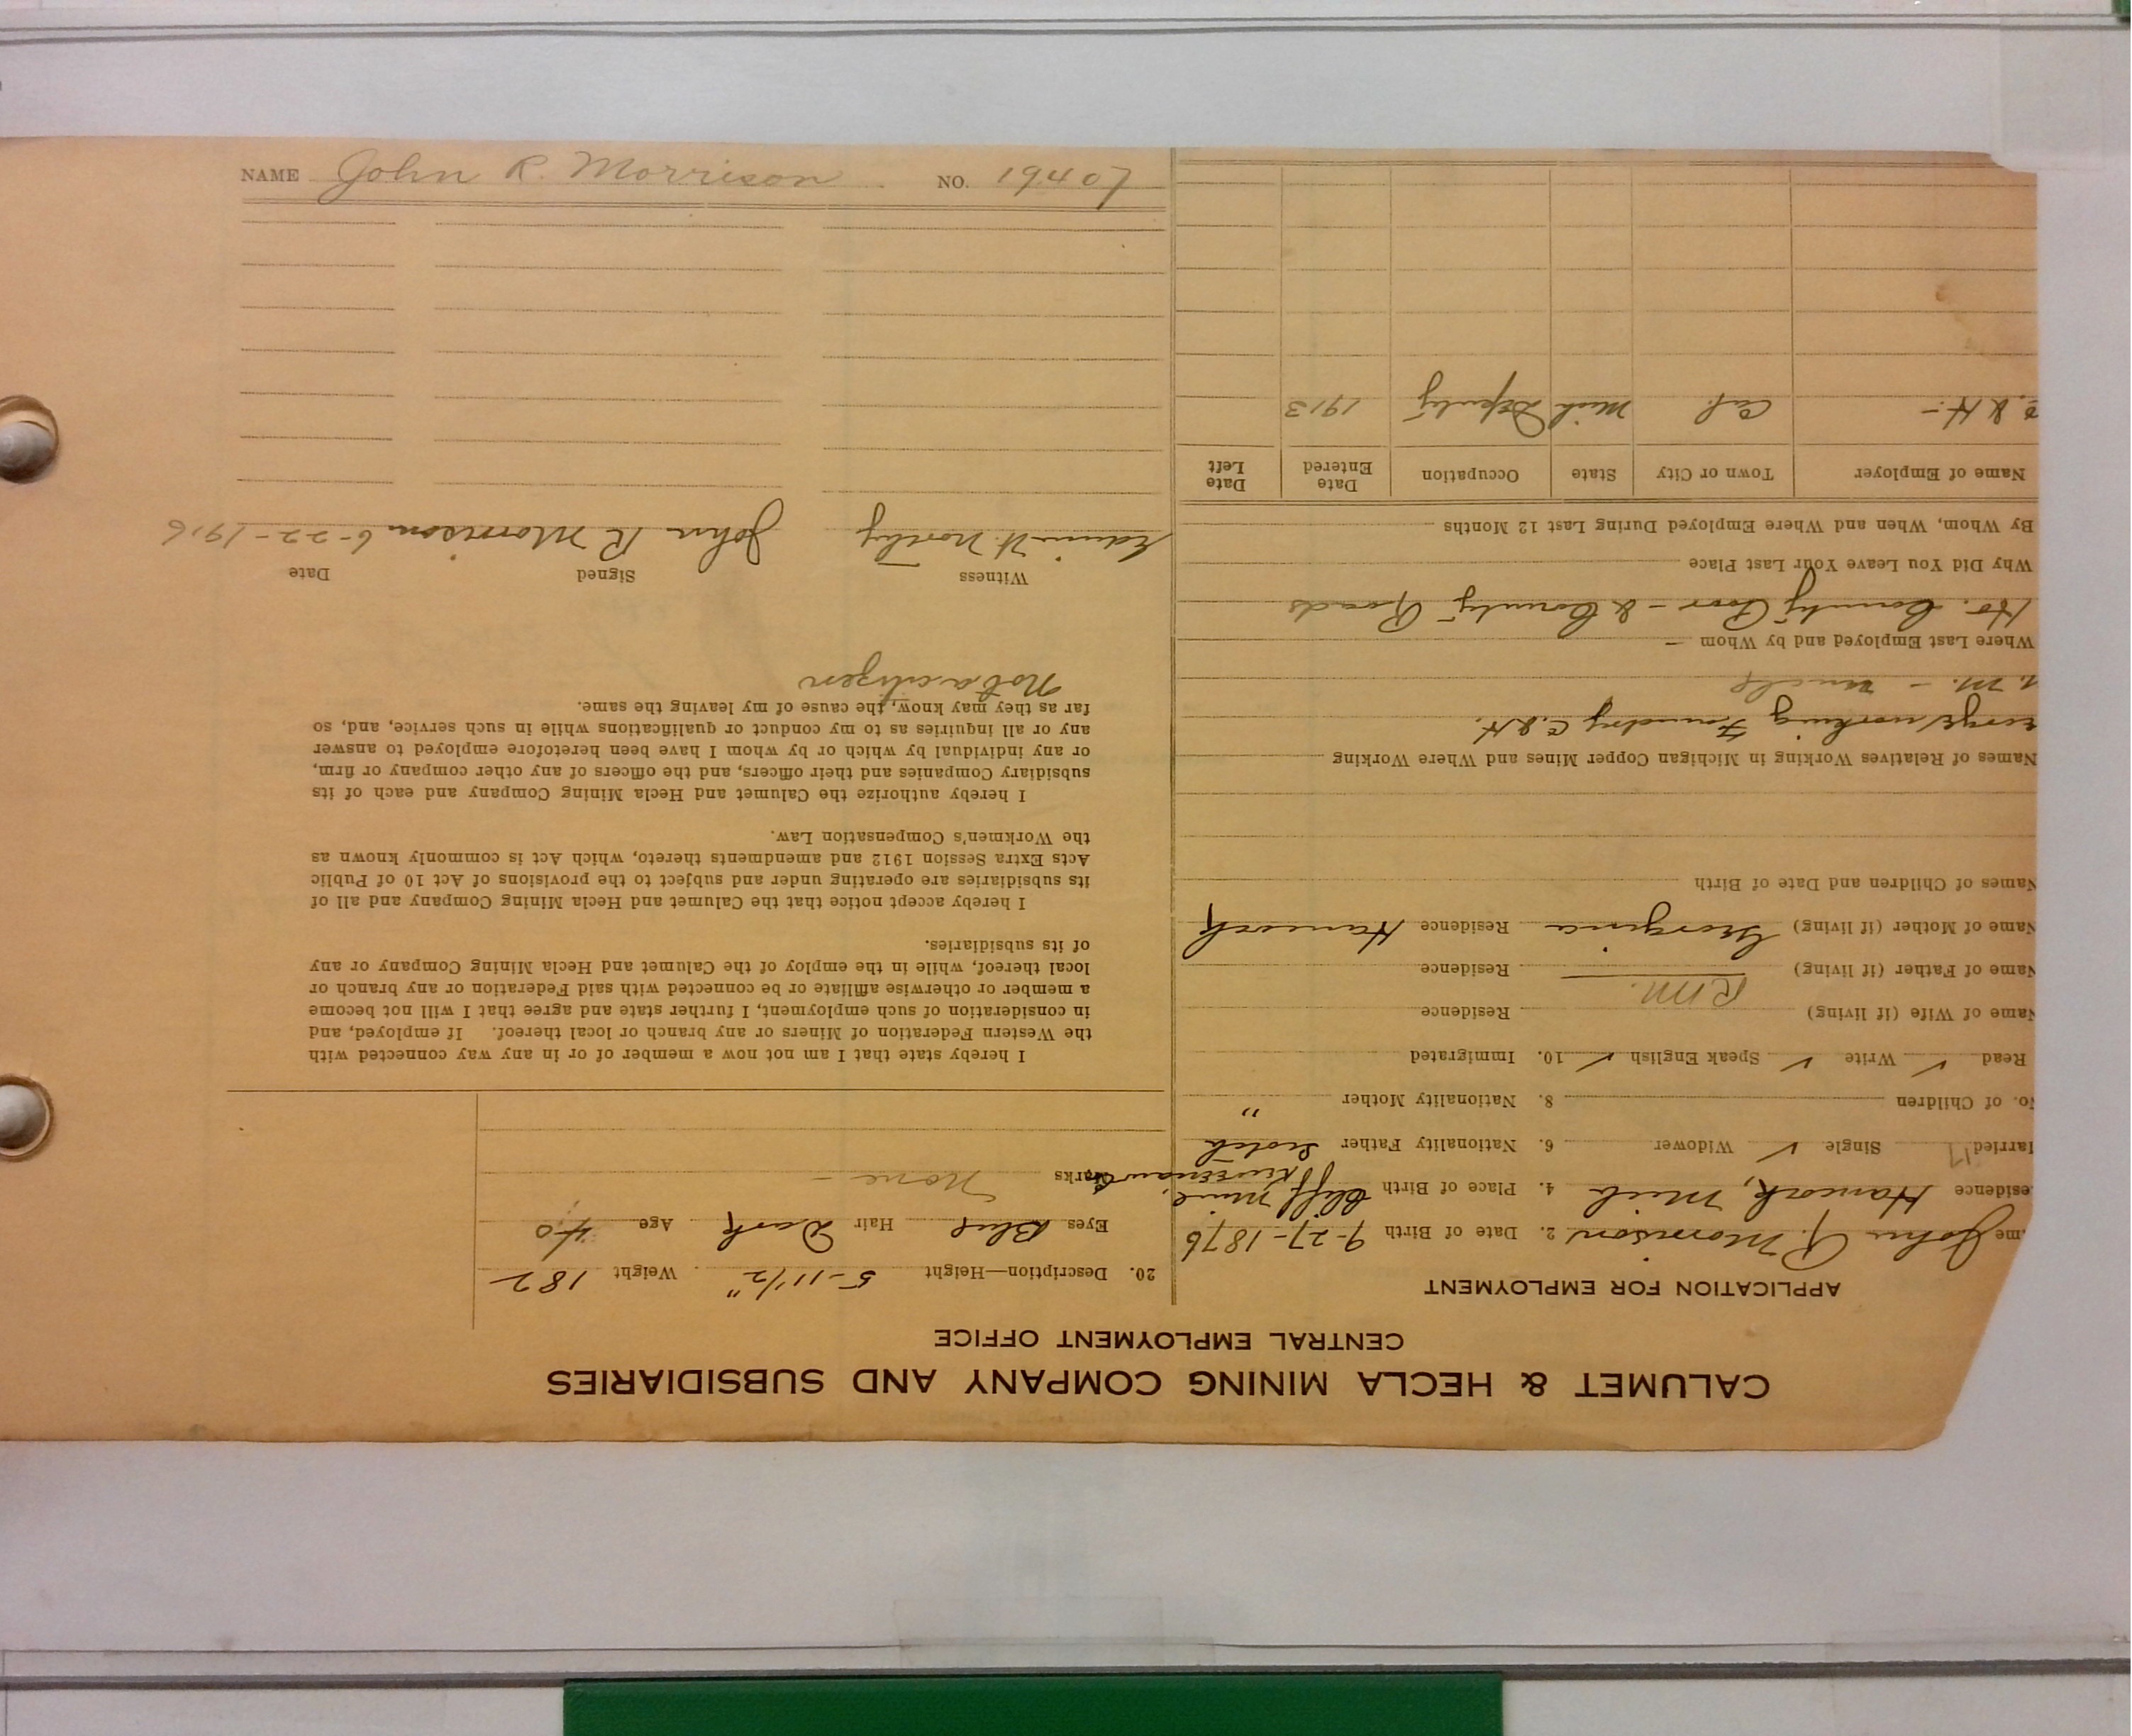 CALUMET & HECLA MINING COMPANY AND SUBSIDIARIES
CENTRAL EMPLOYMENT OFFICE
APPLICATION FOR EMPLOYMENT
me John R. Morrison 2. Date of Birth 9-27-1876
esidence Hancock, Mich 4. Place of Birth Cliff Mine, Keweenaw Co
arried Single ✓ Widower 6. Nationality Father Scotch
o. of Children 8. Nationality Mother "
Read ✓ Write ✓ Speak English ✓ 10. Immigrated
Name of Wife (if living) Residence
R.M.
Name of Father (if living) Residence
Name of Mother (if living) Georgina Residence Hancock
Names of Children and Date of Birth
Names of Relatives Working in Michigan Copper Mines and Where Working
working Foundry C. & H.
M. - uncle
Where Last Employed and by Whom
Ho. County Poor - & County Roads
Why Did You Leave Your Last Place
By Whom, When and Where Employed During Last 12 Months
Name of Employer Town or City State Occupation Date Entered Date Left
C. & H. - Cal. Mich Deputy 1913
20. Description—Height 5-11 1/2" Weight 182
Eyes Blue Hair Dark Age 40
Marks None -
I hereby state that I am not now a member of or in any way connected with
the Western Federation of Miners or any branch or local thereof. If employed, and
in consideration of such employment, I further state and agree that I will not become
a member or otherwise affiliate or be connected with said Federation or any branch or
local thereof, while in the employ of the Calumet and Hecla Mining Company or any
of its subsidiaries.
I hereby accept notice that the Calumet and Hecla Mining Company and all of
its subsidiaries are operating under and subject to the provisions of Act 10 of Public
Acts Extra Session 1912 and amendments thereto, which Act is commonly known as
the Workmen's Compensation Law.
I hereby authorize the Calumet and Hecla Mining Company and each of its
subsidiary Companies and their officers, and the officers of any other company or firm,
or any individual by which or by whom I have been heretofore employed to answer
any or all inquiries as to my conduct or qualifications while in such service, and, so
far as they may know, the cause of my leaving the same.
Not a citizen
Witness Signed Date
Edwin H. John R Morrison 6-22-1916
NAME John R. Morrison NO. 19407